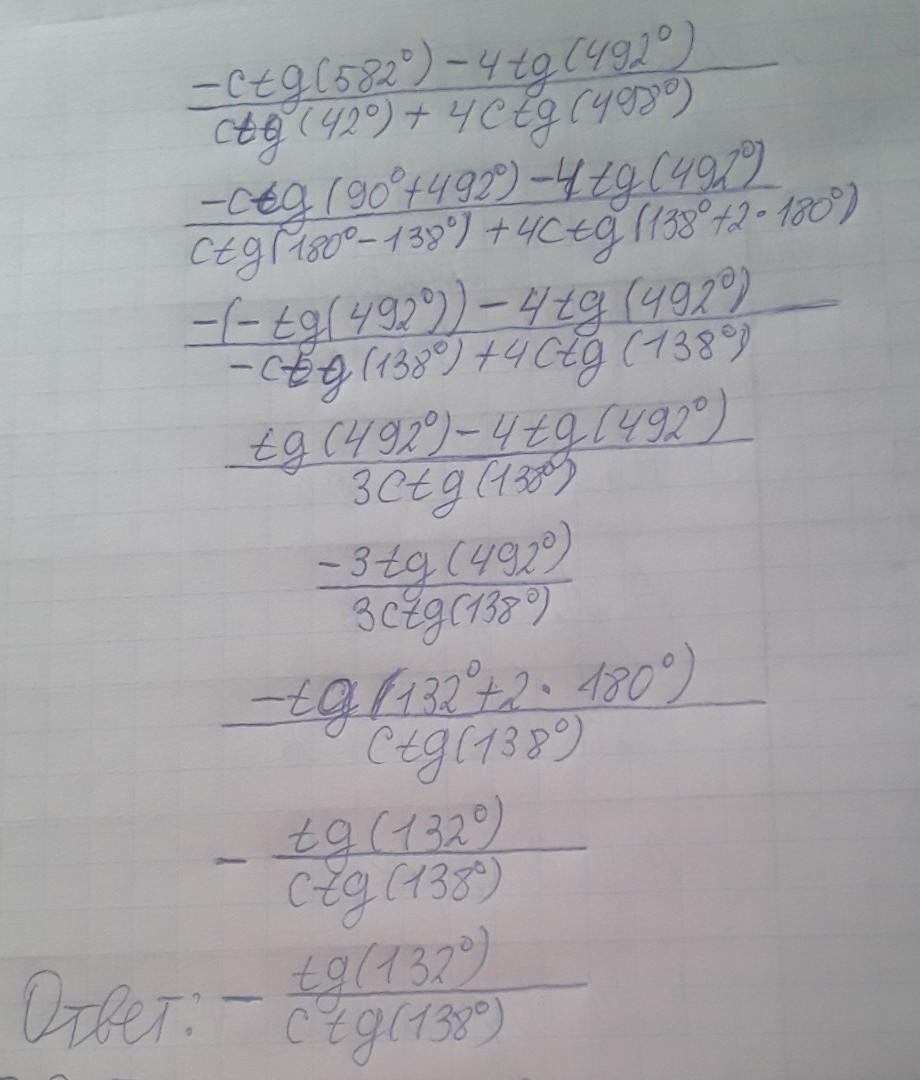 -ctg(582°) - 4tg(492°)
ctg(42°) + 4ctg(498°)
-ctg(90°+492°) - 4tg(492°)
ctg(180°-138°) + 4ctg(138°+2·180°)
-(-tg(492°)) - 4tg(492°)
-ctg(138°) + 4ctg(138°)
tg(492°) - 4tg(492°)
3ctg(138°)
-3tg(492°)
3ctg(138°)
-tg(132°+2·180°)
ctg(138°)
- tg(132°)
ctg(138°)
Ответ: - tg(132°)
ctg(138°)